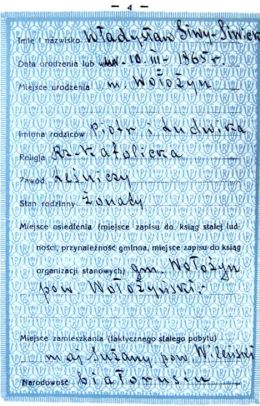 — 4 —
Imię i nazwisko Władysław Siwy-Siwicki
Data urodzenia lub 10.III-1865 r
Miejsce urodzenia m. Wołożyn
Imiona rodziców Piotr i Ludwika
Religja Rz-Katolicka
Zawód Leśniczy
Stan rodzinny Żonaty
Miejsce osiedlenia (miejsce zapisu do ksiąg stałej lud-
ności, przynależność gminna, miejsce zapisu do ksiąg
organizacji stanowych) gm. Wołożyn
pow Wołożyński.-
Miejsce zamieszkania (faktycznego stałego pobytu)
maj Sużany pow Wileński
Narodowość białorusin